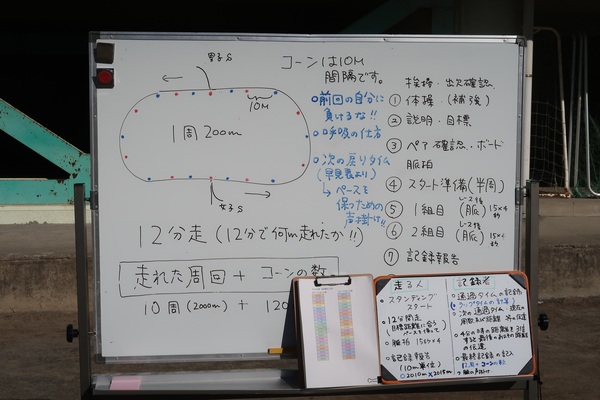 男子S
コーンは10M
間隔です。
10M
1周200m
女子S
12分走(12分で何m走れたか!!)
走れた周回 + コーンの数
10周(2000m) + 120
○前回の自分に
負けるな!!
○呼吸の仕方
○次の戻りタイム
(早見表より)
↳ペースを
保っための
声掛け!!
挨拶・出欠確認
① 体操・(補強)
② 説明・目標
③ ペア確認・ボード
脈拍
④ スタート準備(半周)
⑤ 1組目 (脈)
⑥ 2組目 (脈)
⑦ 記録報告
走る人
・スタンディング
スタート
・12分間走
・脈拍 15秒×4
・記録報告
(10m単位)
○2010m×2015m
記録者
・通過タイムの記録
(ラップタイムの計算)
・次の通過タイム
の伝達
・最終記録の記入